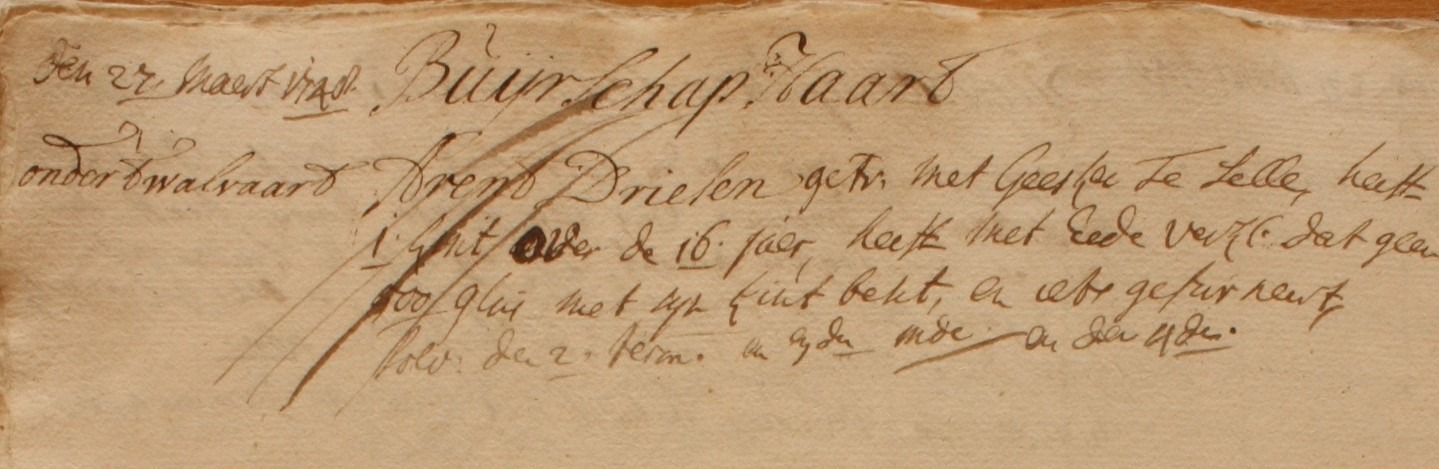 Den 27 Maert 1748. Buijrschap Haart
onder Walvaart Arent Driesen getr. met Geesken Te Selle, heeft
1. kint onder de 16. jaer, heeft met Eede verkl. dat geen
500 gl. met syn kint besit, en ietr gefurneert,
solv. den 2. term. en den en den 4den.